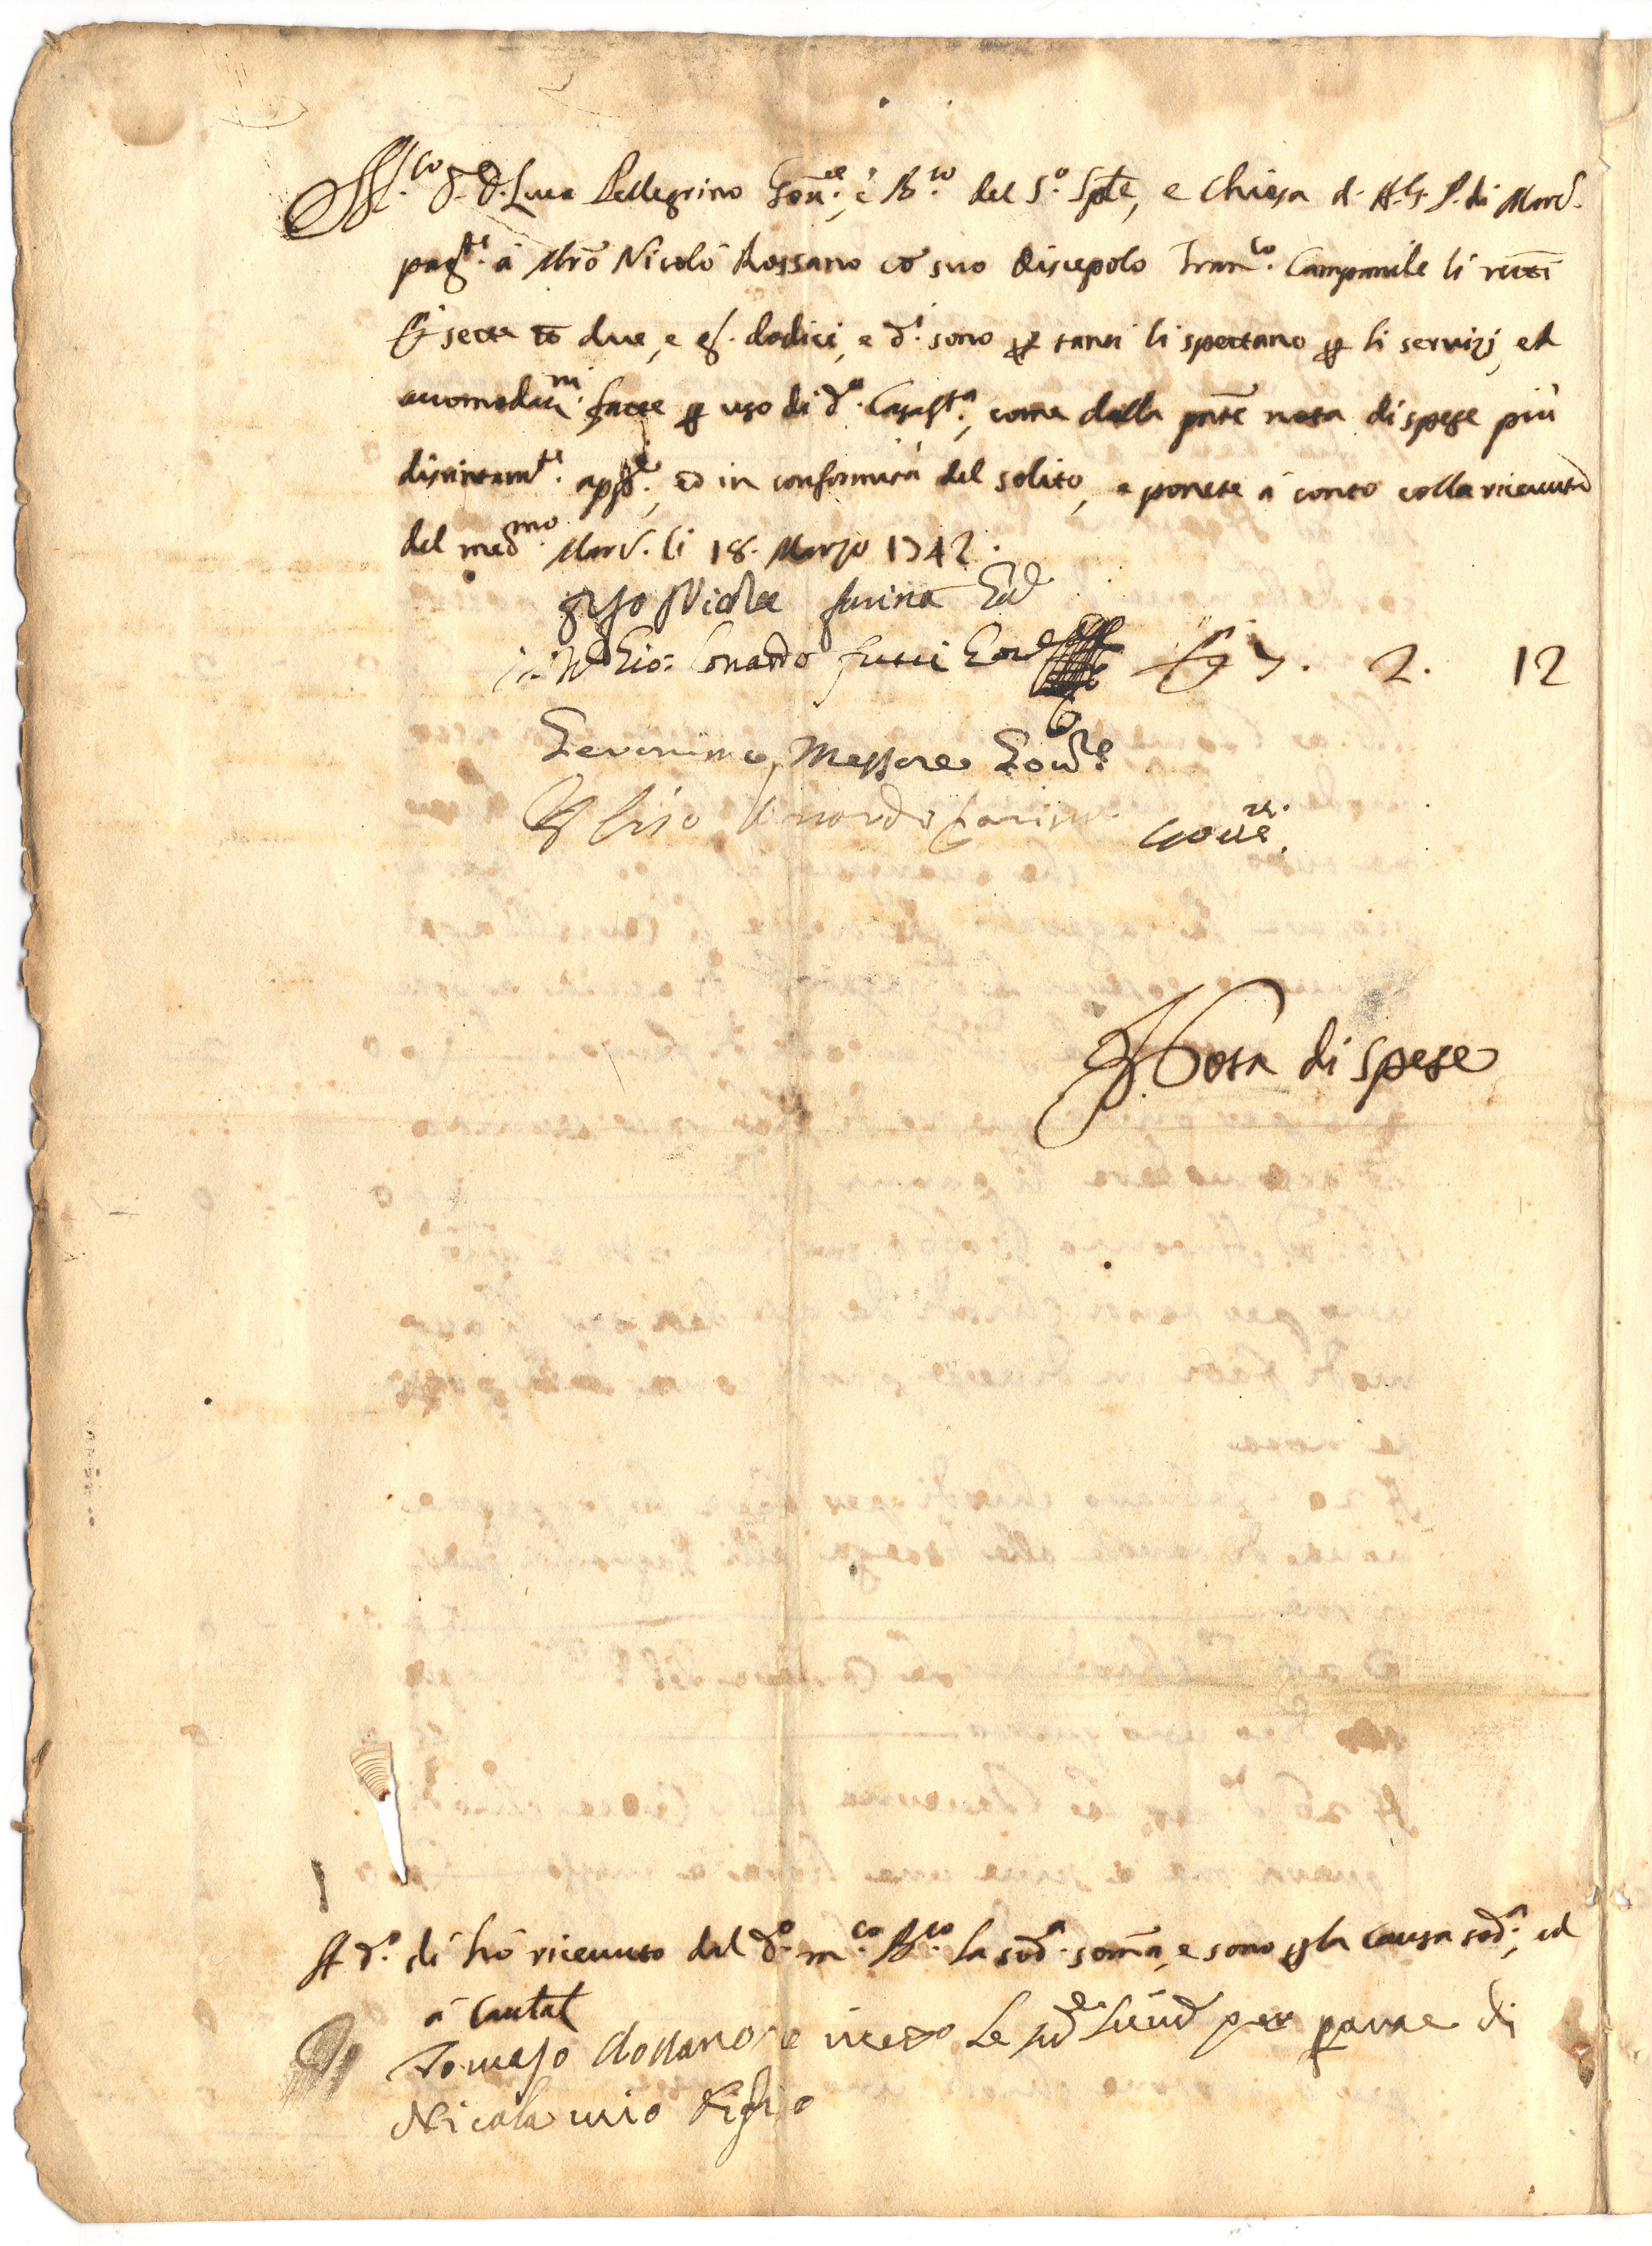 M.co S.r D. Luca Pellegrino Gov.re, e B.co del S.o Sple, e Chiesa d. A.G.P. di Mord.
pag.te á Mrõ Nicolò Rossano cõ suo discepolo Fran.co Campanile li rttĩ
sette tt due, e g. dodici, e d.i sono p tanti li spettano p li servizj, ed
accomodam.ni facte p uso di d.a Casas.ta, come dalla pnte nota di spese più
distintam.te app.e, ed in conformità del solito, e ponete á conto colla ricevuta
del med.mo Mord. li 18. Marzo 1742.
Nicola farina
Gio: Lonardo fucci 7. 2. 12
Geronimo Messere Gov.re
Lonardo Gove.re
Nota di spese
A d.o dì hò ricevuto dal d.o m.co B.co la sod.a somã, e sono p la causa sod.a, ed
á Cautal
Io Tomaso Rossano ricevo le sud.e per parte di
Nicola mio figlio